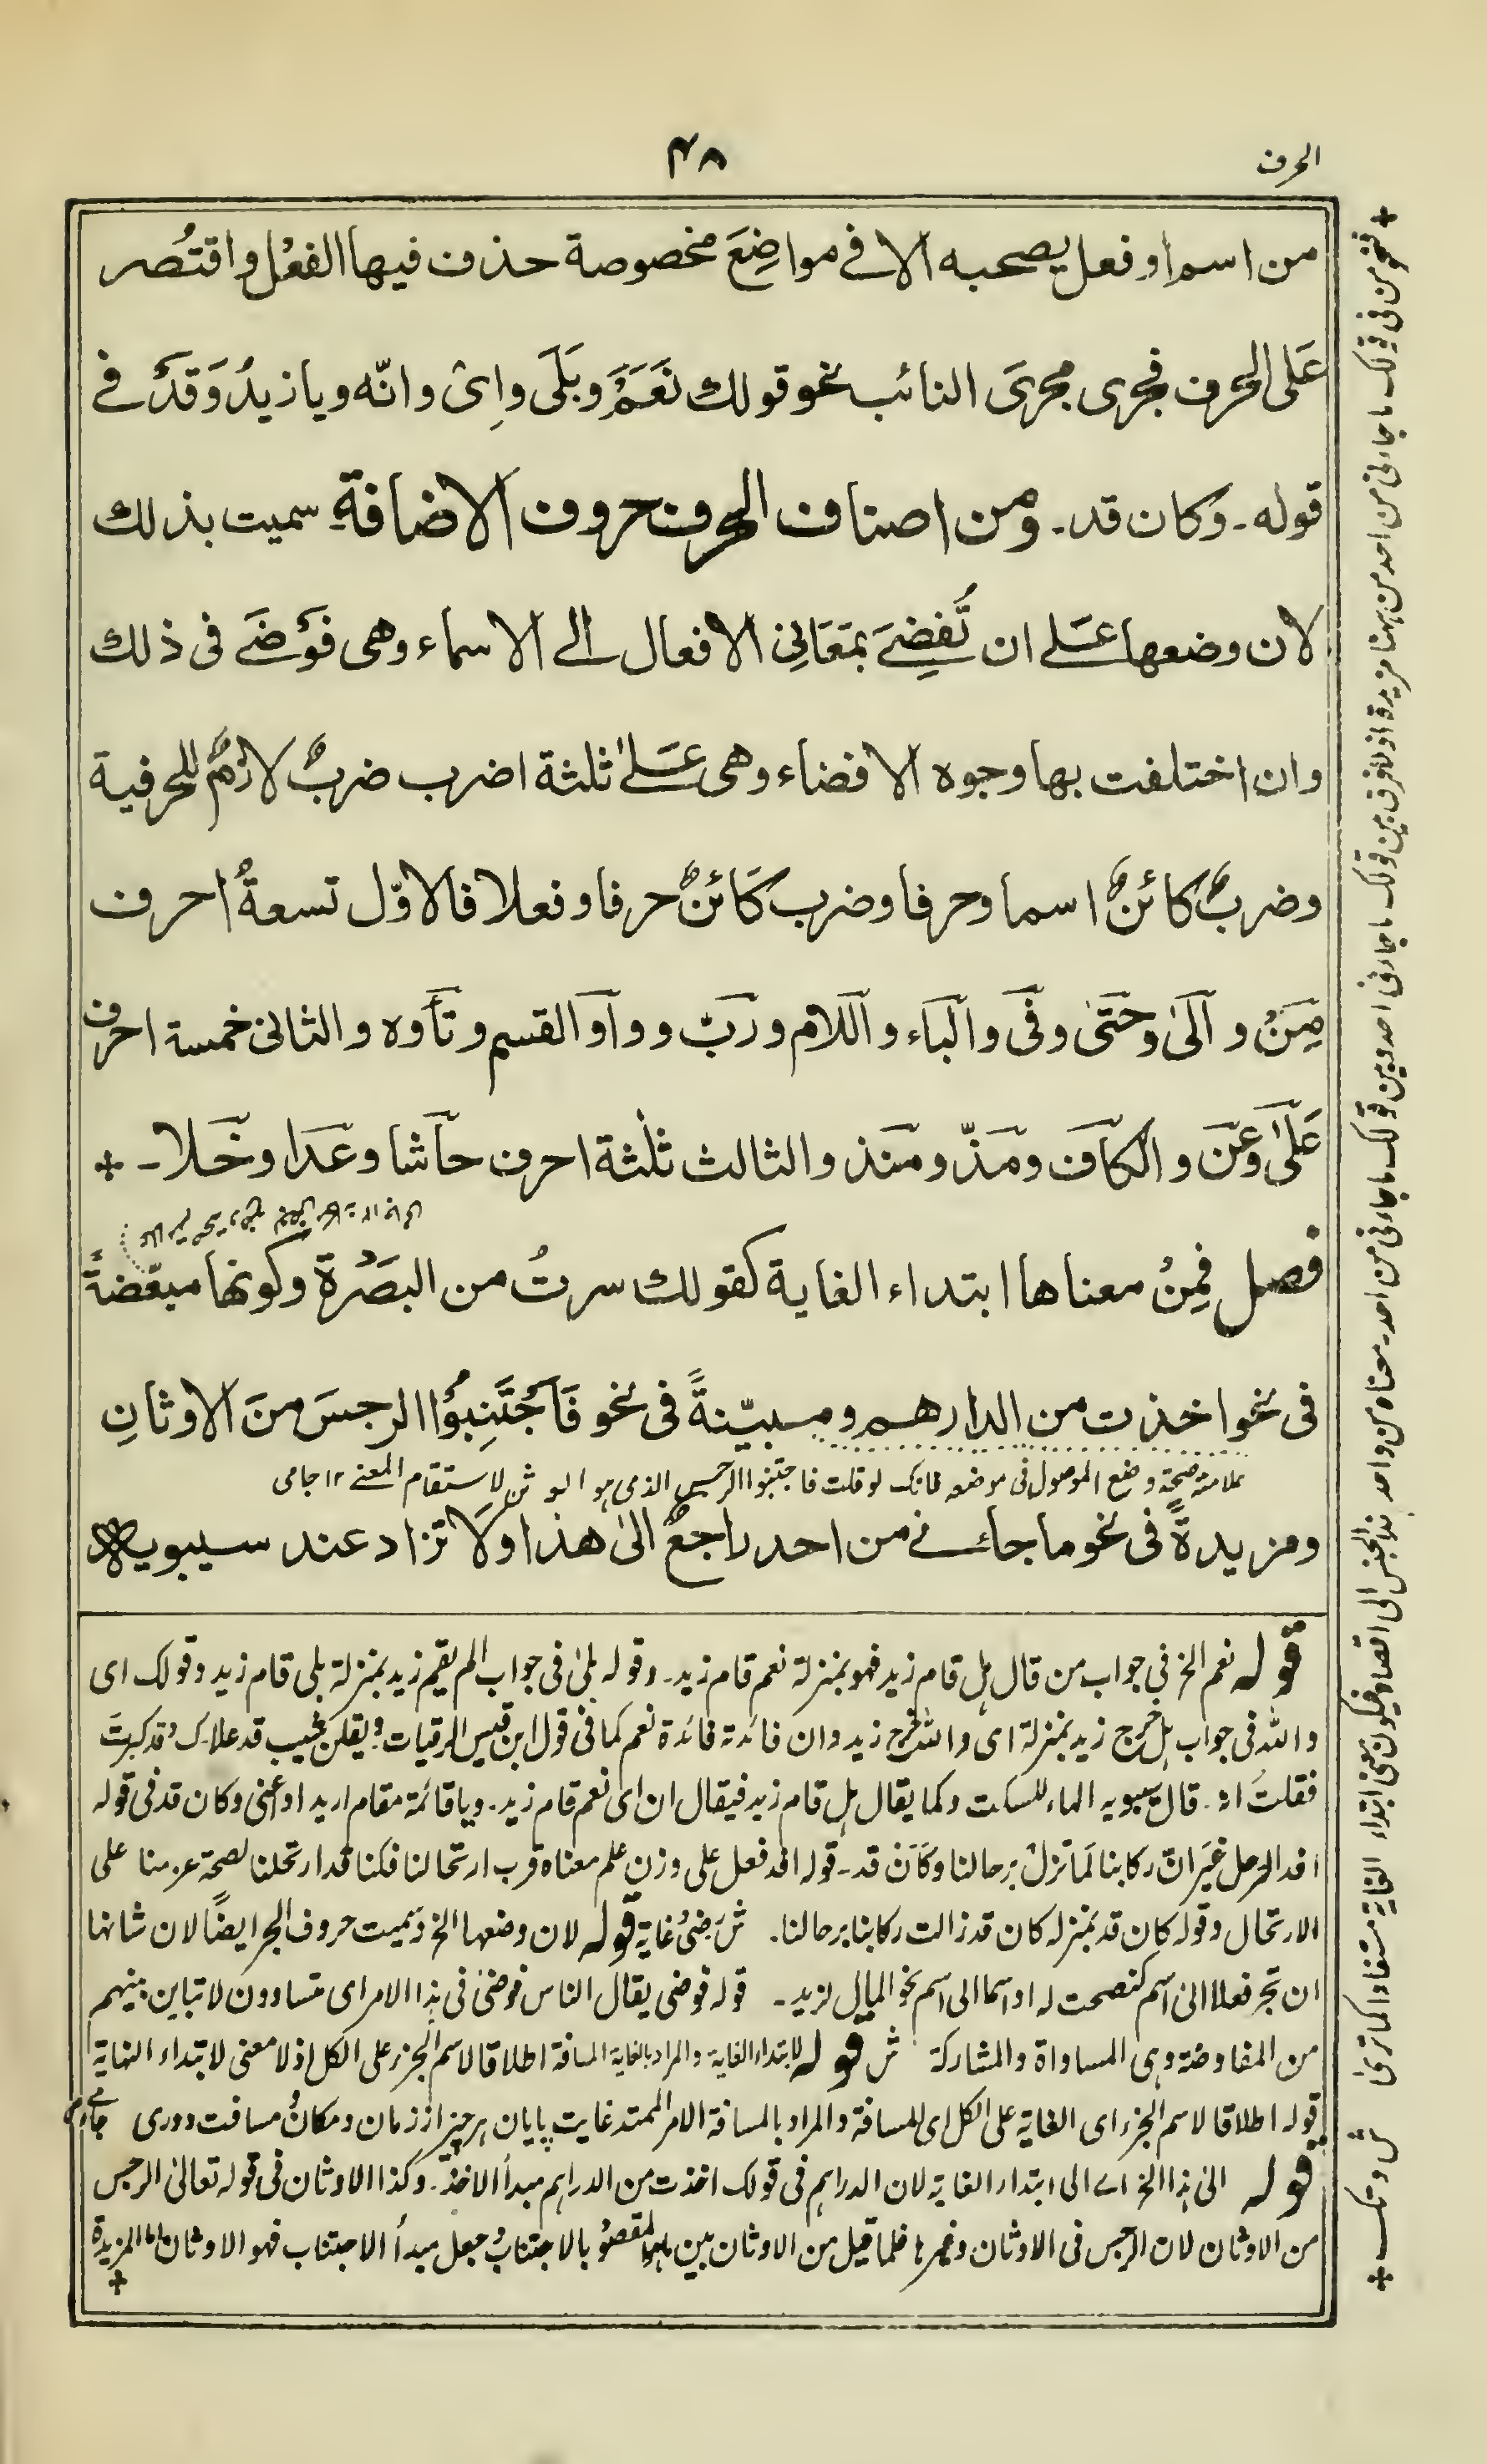 الحرف
۴۸
من اسم او فعل يصحبه الا فے مواضِعَ مخصوصة حذف فيها الفعْل واقتُصر
عَلى الحرف فجرى مجرىَ النائب نحو قولك نَعَمْ وبَلَى واِىْ وانّه ويا زيدُ وَقَدْ فے
قوله ـ وكان قد ـ ومن اصناف الحرف حروف الاضافةِ سميت بذلك
لان وضعها عَلے ان تُفضِےَ بمَعَانِى الافعال الے الاسماء وهى فَوْضَے فى ذلك
وان اختلفت بها وجوه الافضاء وهى عَلےٰ ثلثة اضرب ضربٌ لازمٌ للحرفية
وضربٌ كائنٌ اسما وحرفا وضرب كَائنٌ حرفا وفعلا فالاوّل تسعةُ احرف
مِنْ و الىٰ وحتىٰ وفى والباء واللام ورب وواو القسم وتاوه والثانى خمسة احرف
علىٰ وعن والكاف ومذ ومنذ والثالث ثلٰثة احرف حاشا وعدا وخلا ـ +
فصل فمِنْ معناها ابتداء الغاية كقولك سرتُ من البصْرة وكونها مبعّضةً
فى نحو اخذت من الدارهم ومبيّنةً فى نحو فَاجْتَنِبُوْا الرجسَ منَ الاوثانِ
علامته صحة وضع الموصول فى موضعه فانك لو قلت فاجتنبوا الرجس الذى هو الوثن لاستقام المعنے ۱۲ جامى
ومزيدةً فى نحو ما جاءنے من احد راجعٌ الىٰ هذا ولا تزاد عند سيبويه الا
قوله نعم الخ فى جواب من قال هل قام زيد فهو بمنزلة نعم قام زيد ـ وقوله بلىٰ فى جواب الم يقم زيد بمنزلة بلى قام زيد وقولك اى
والله فى جواب هل خرج زيد بمنزلة اى والله خرج زيد وان فائدته فائدة نعم كما فى قول ابن قيس الرقيات ؛ ويقلن شيب قد علاك ؛ وقد كبرتَ
فقلتُ انه ـ قال سيبويه الهاء للسكت وكما يقال هل قام زيد فيقال ان اى نعم قام زيد ـ ويا قائمة مقام اريد او اعنى وكان قد فى قوله
افد الترحل غيرَ انّ ركابنا لما تزلْ برحالنا وكأن قد ـ قوله افد فعل على وزن علم معناه قرب ارتحالنا فكنا قد ارتحلنا لصحة عزمنا على
الارتحال وقوله كان قد بمنزله كان قد زالت ركابنا برحالنا ـ قوله لان وضعها الخ وسميت حروف الجر ايضًا لان شانها
ان تجر فعلا الى اسم كنصحت له او اسما الى اسم نحو المال لزيد ـ قوله فوضى يقال الناس فوضىٰ فى هذا الامر اى متساوون لا تباين بينهم
من المفاوضة وهى المساواة والمشاركة ش قوله لابتداء الغاية والمراد بالغاية المسافة اطلاقا لاسم الجزء على الكل اذ لا معنى لابتداء النهاية
قوله اطلاقا لاسم الجزء اى الغاية على الكل اى للمسافة والمراد بالمسافة الامر الممتد غايت پايان هر چيز از زمان ومكان ومسافت ودورى جامى
قوله الى هذا الخ اے الى ابتداء الغاية لان الدراهم فى قولك اخذت من الدراهم مبدأ الاخذ ـ وكذا الاوثان فى قوله تعالىٰ الرجس
من الاوثان لان الرجس فى الاوثان وغيرها فلما قيل من الاوثان بين المقصود بالاجتناب جعل مبدأ الاجتناب فهو الاوثان اما المزيدة
+
+ فنحو من فى قولك ما جاءنى من احد من ههنا مزيدة اذ لا فرق بين قولك ما جاءنى احد وبين قولك ما جاءنى من احد ـ معناه من واحد هذا الجنس الى اقصاه فيكون معنى ابتداء الغاية مستفادا كما ترىٰ ش وتك +